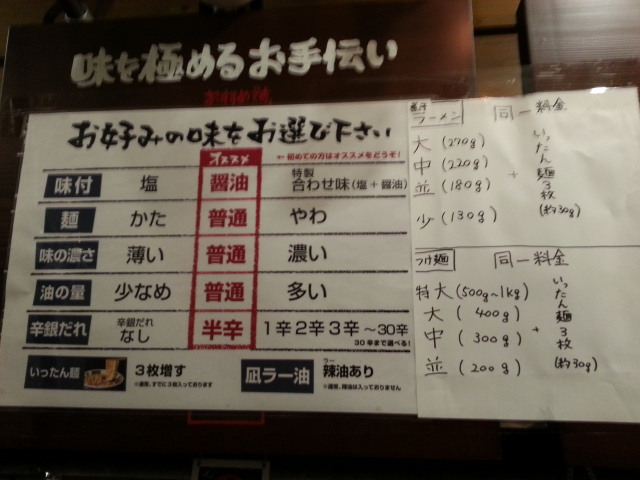 味を極めるお手伝い
お好みの味をお選び下さい
オススメ
← 初めての方はオススメをどうぞ!
味付 塩 醤油 特製 合わせ味(塩+醤油)
麺 かた 普通 やわ
味の濃さ 薄い 普通 濃い
油の量 少なめ 普通 多い
辛銀だれ 辛銀だれ なし 半辛 1辛 2辛 3辛 ～30辛
30辛まで選べる!
いったん麺 3枚増す
※通常、すでに3枚入っております
凪ラー油 ラー 辣油あり
※通常、辣油は入っておりません
煮干 ラーメン 同一料金
大 (270g)
中 (220g)
並 (180g)
少 (130g)
+ いったん麺3枚 (約30g)
つけ麺 同一料金
特大 (500g～1kg)
大 (400g)
中 (300g)
並 (200g)
+ いったん麺3枚 (約30g)